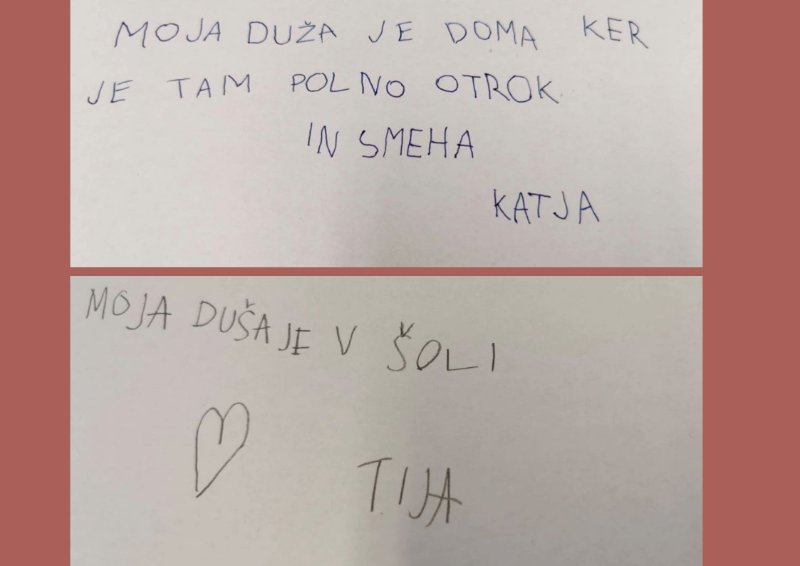 MOJA DUŽA JE DOMA KER
JE TAM POLNO OTROK
IN SMEHA
KATJA
MOJA DUŠA JE V ŠOLI
TIJA